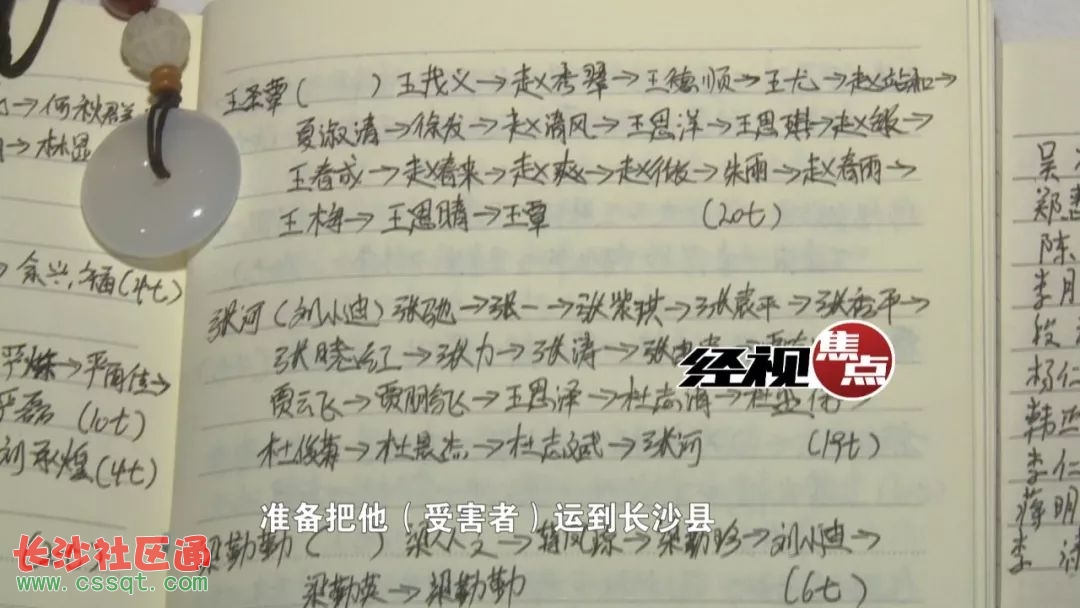 →何秋群
→林显
→余兴福(4t)
严焕→严雨佳→
严磊 (10t)
刘承煌(4t)
王圣覃( )王茂义→赵秀翠→王德顺→王尤→赵站和→
夏淑清→徐发→赵清风→王思洋→王思琪→赵银→
王春成→赵春来→赵爽→赵行→朱雨→赵春雨→
王梅→王思晴→王覃 (20t)
张河(刘小迪)张驰→张一→张紫琪→张袁平→张秀平→
张晓红→张力→张涛→张
贾云飞→贾鹏飞→王思泽→杜志海→杜
杜俊英→杜晨杰→杜志斌→张河 (19t)
梁勤勤( )梁人文→蒋凤琼→梁勤珍→刘小迪→
梁勤英→梁勤勤 (6t)
吴
郑慧
陈
李月
段
杨仁
韩
李仁
蒋明
李
经视焦点
准备把他(受害者)运到长沙县
长沙社区通
www.cssqt.com